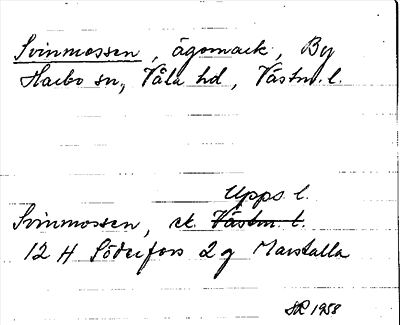 Svinmossen, ägomark, By
Harbo sn, Våla hd, Västm. l.
Upps. l.
Svinmossen, ek. Västm. l.
12 H Söderfors 2 g Marstalla
SR 1958